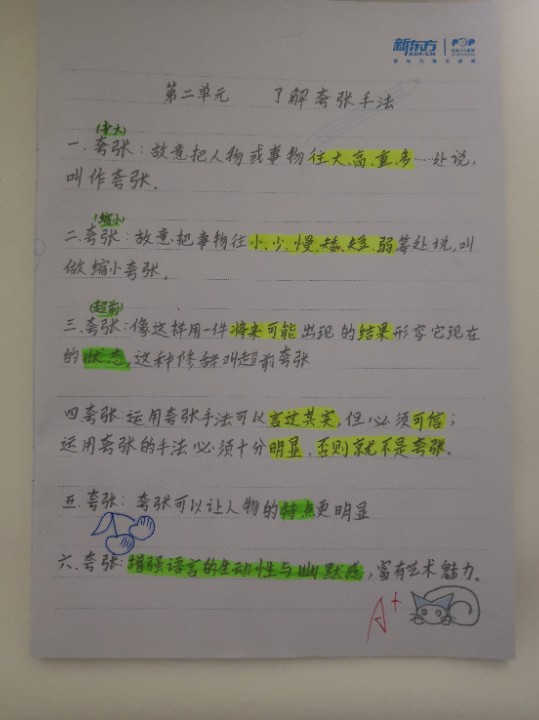 新东方
POP
第二单元 了解夸张手法
(夸大)
一.夸张:故意把人物或事物往大、高、重、多……处说,
叫作夸张。
(缩小)
二.夸张:故意把事物往小、少、慢、矮、短、弱等处说,叫
做缩小夸张。
(超前)
三.夸张:像这样用一件将来可能出现的结果形容它现在
的状态,这种修辞叫超前夸张
四.夸张:运用夸张手法可以言过其实,但必须可信;
运用夸张的手法必须十分明显,否则就不是夸张。
五.夸张:夸张可以让人物的特点更明显
六.夸张:增强语言的生动性与幽默感,富有艺术魅力。
A+